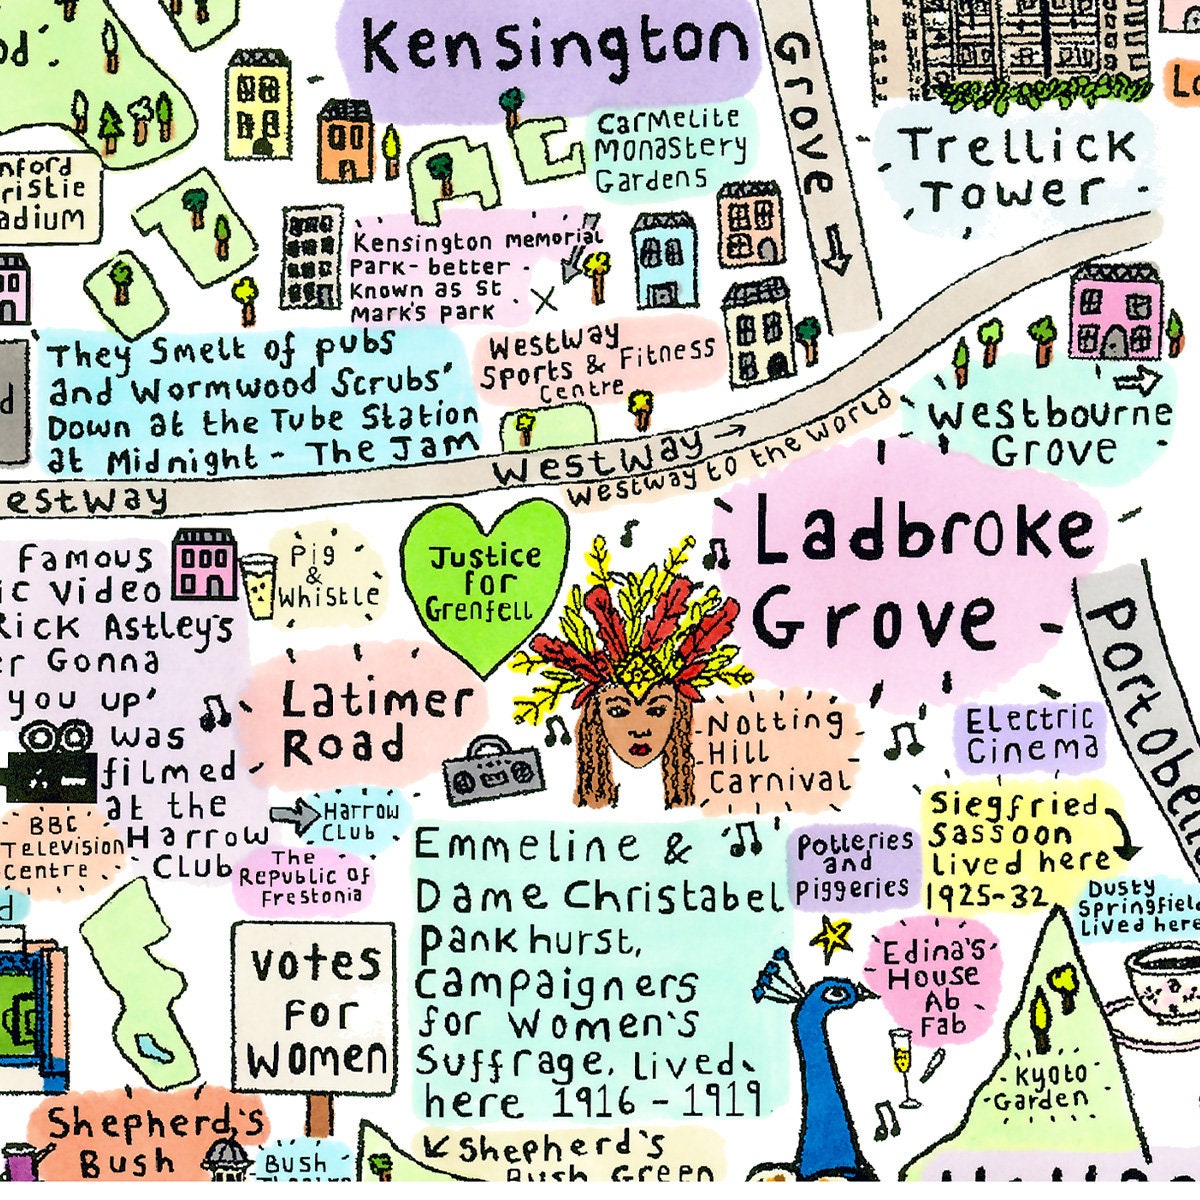 Kensington
Grove
Trellick
Tower
Carmelite
Monastery
Gardens
Kensington memorial
Park - better
Known as St
Mark's park
They Smelt of pubs
and Wormwood Scrubs'
Down at the Tube Station
at Midnight - The Jam
Westway
Sports & Fitness
Centre
Westway
Westway to the world
estway
Westbourne
Grove
Ladbroke
Grove
Famous
ic video
Rick Astley's
er Gonna
you up'
was
filmed
at the
Harrow
Club
Pig
&
Whistle
Justice
for
Grenfell
Latimer
Road
Notting
Hill
Carnival
Electric
Cinema
Portobell
Harrow
Club
BBC
Television
Centre
The
Republic of
Frestonia
Emmeline &
Dame Christabel
Pankhurst,
Campaigners
for Women's
Suffrage, lived
here 1916 - 1919
Potteries
and
Piggeries
Siegfried
Sassoon
lived here
1925-32
Dusty
Springfield
Lived here
Votes
for
Women
Edina's
House
Ab
Fab
Kyoto
Garden
Shepherd's
Bush
Bush
Shepherd's
Bush Green